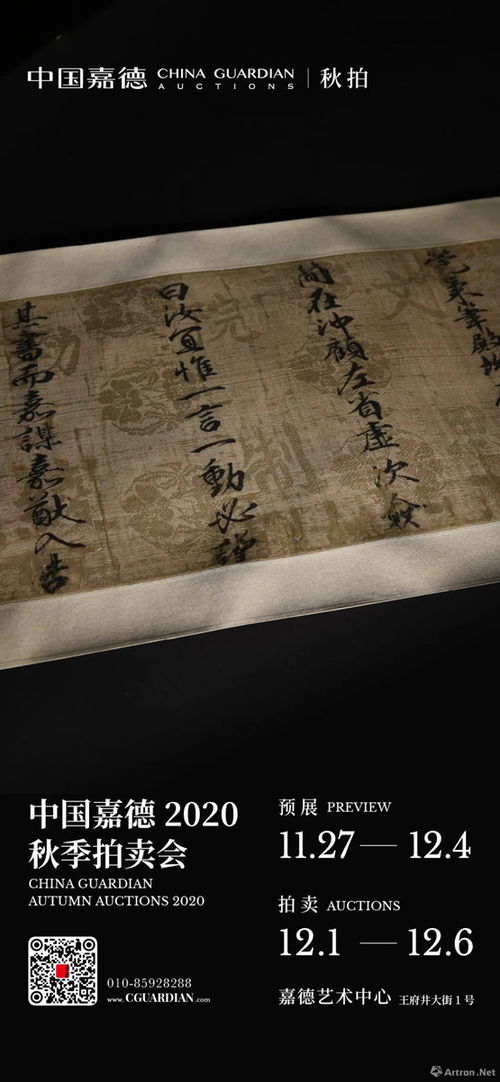 中国嘉德 CHINA GUARDIAN AUCTIONS | 秋拍
曰汝宜惟一言一動必謹
其書而嘉謀嘉猷入告
中国嘉德 2020
秋季拍卖会
CHINA GUARDIAN
AUTUMN AUCTIONS 2020
010-85928288
www.CGUARDIAN.com
预展 PREVIEW
11.27 — 12.4
拍卖 AUCTIONS
12.1 — 12.6
嘉德艺术中心 王府井大街1号
Artron.Net